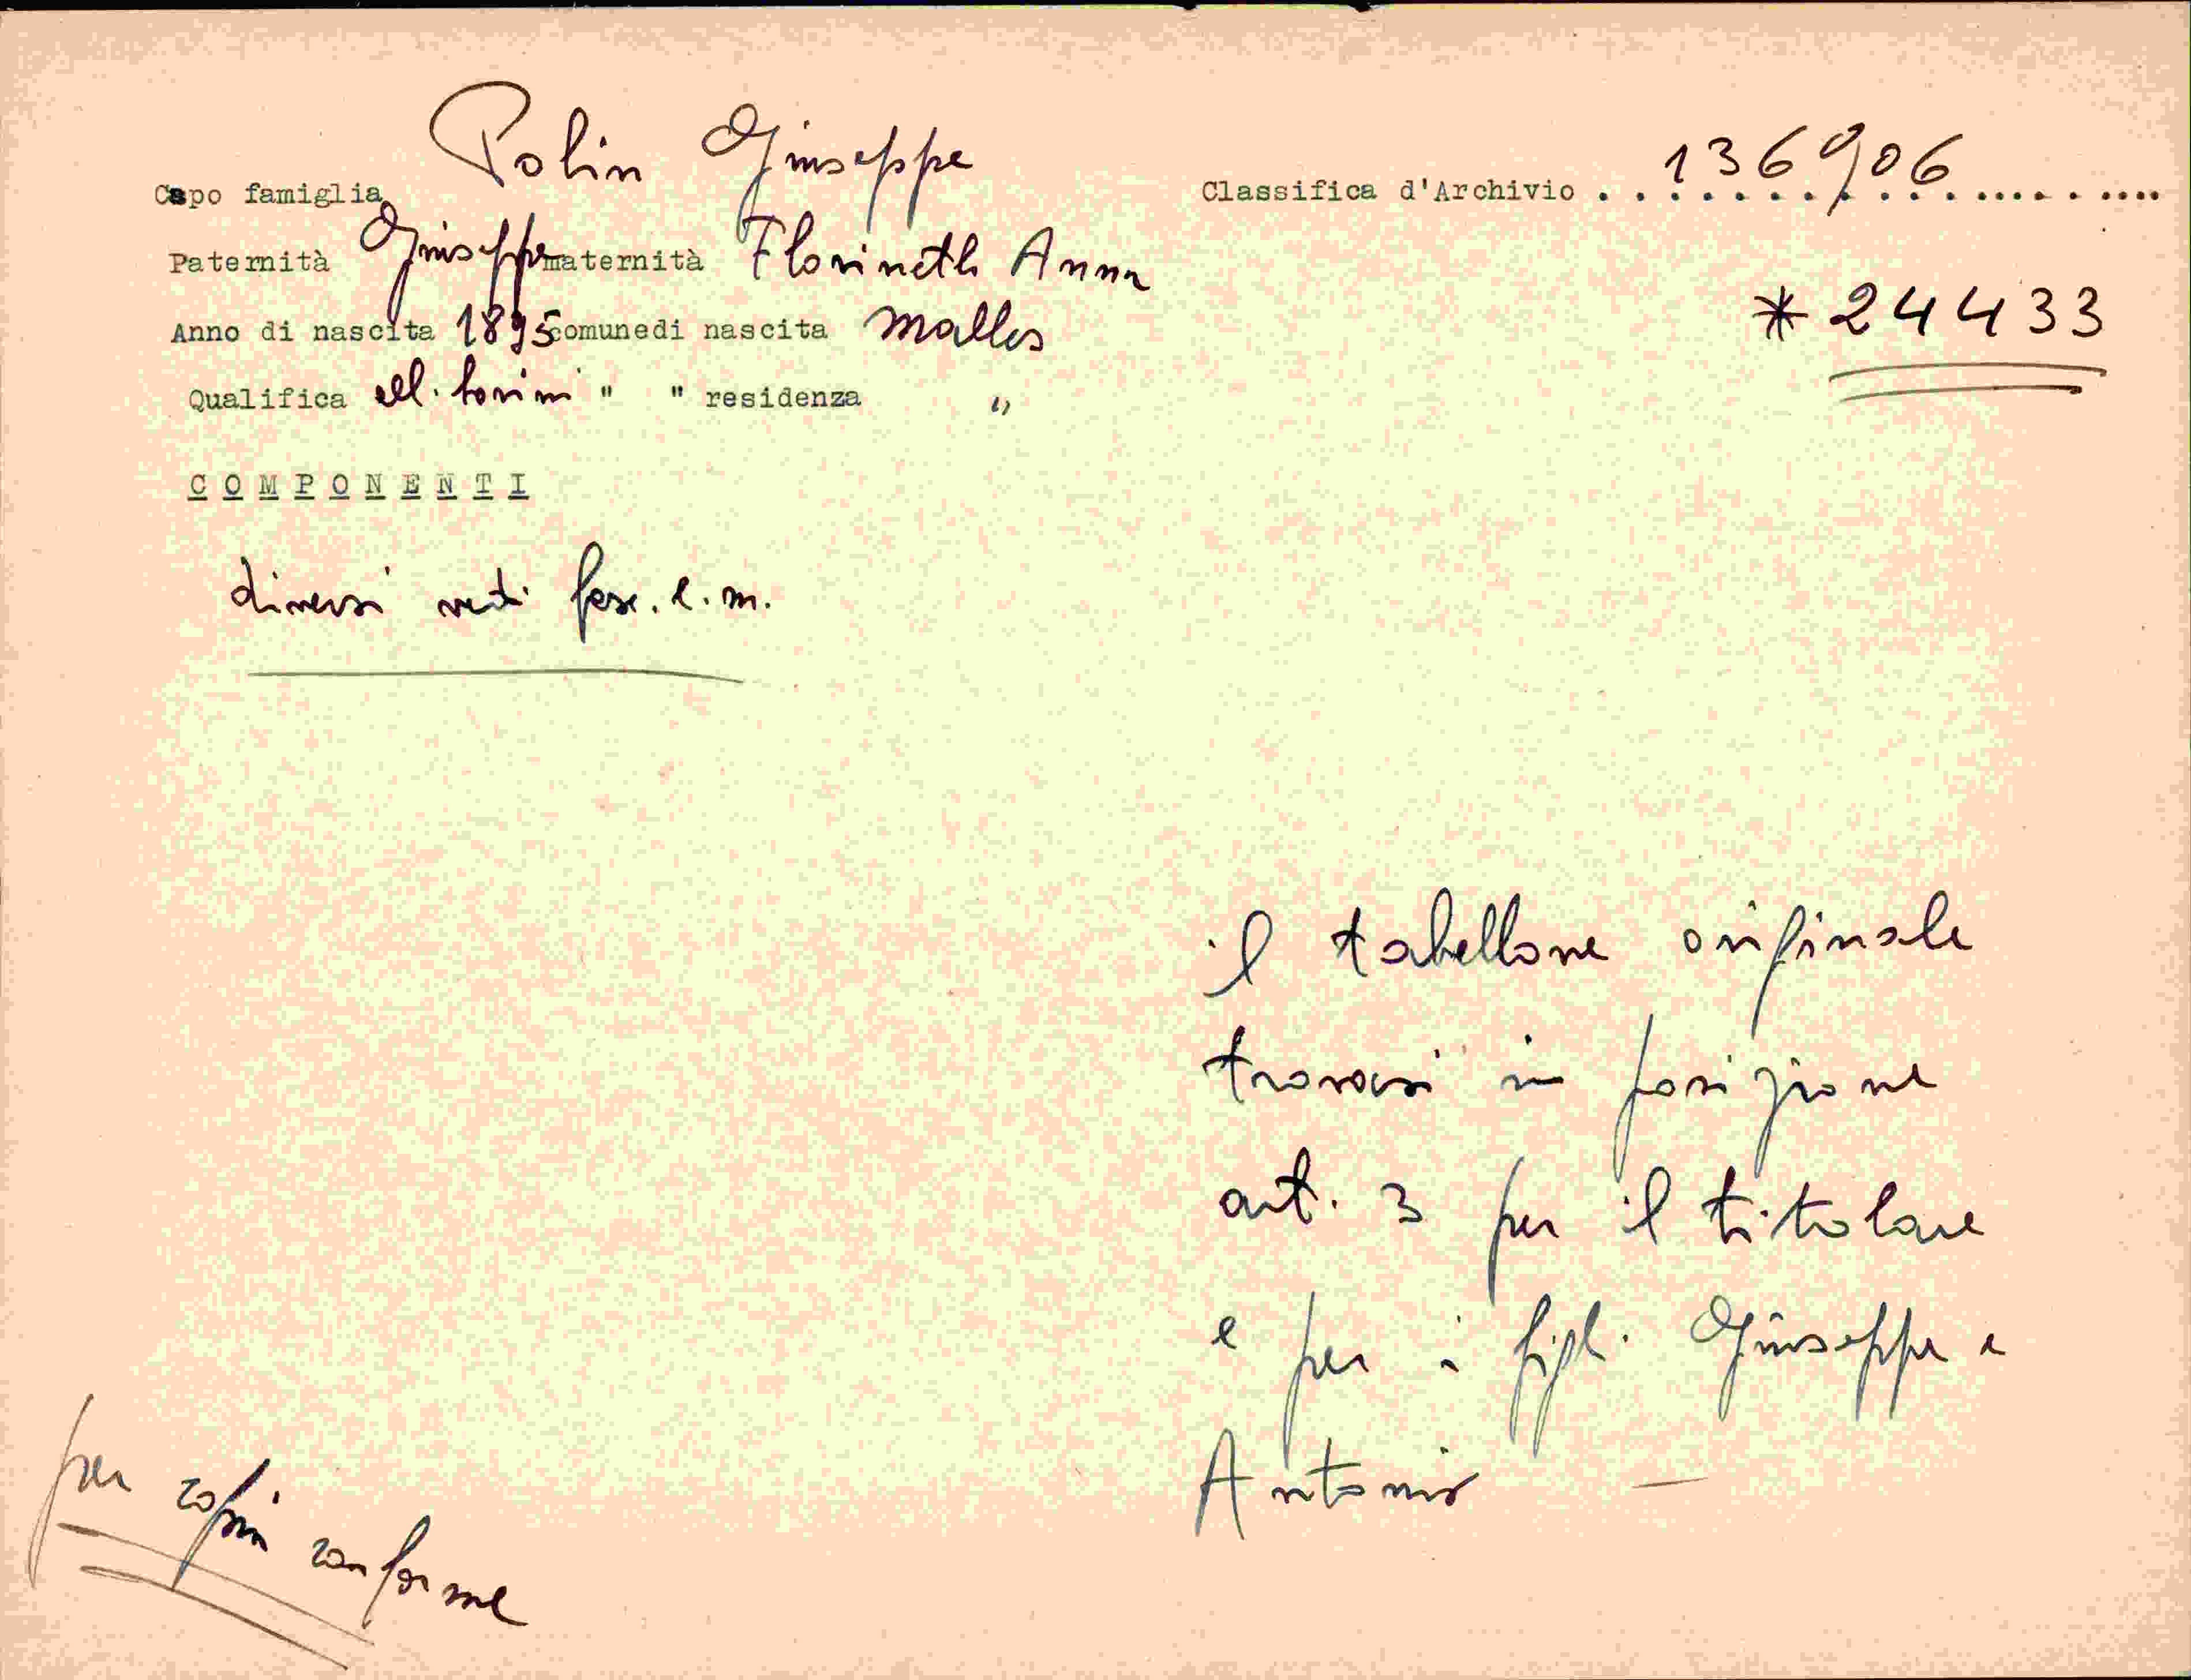 Capo famiglia Polin Giuseppe
Classifica d'Archivio . . . 136906 . . .
Paternità Giuseppe maternità Florineth Anna
* 24433
Anno di nascita 1895 comunedi nascita Malles
Qualifica all. " " residenza "
COMPONENTI
diversi vedi fasc. e.m.
il tabellone originale
trovasi in posizione
art. 3 per il titolare
e per i figli Giuseppe e
Antonio —
per copia conforme